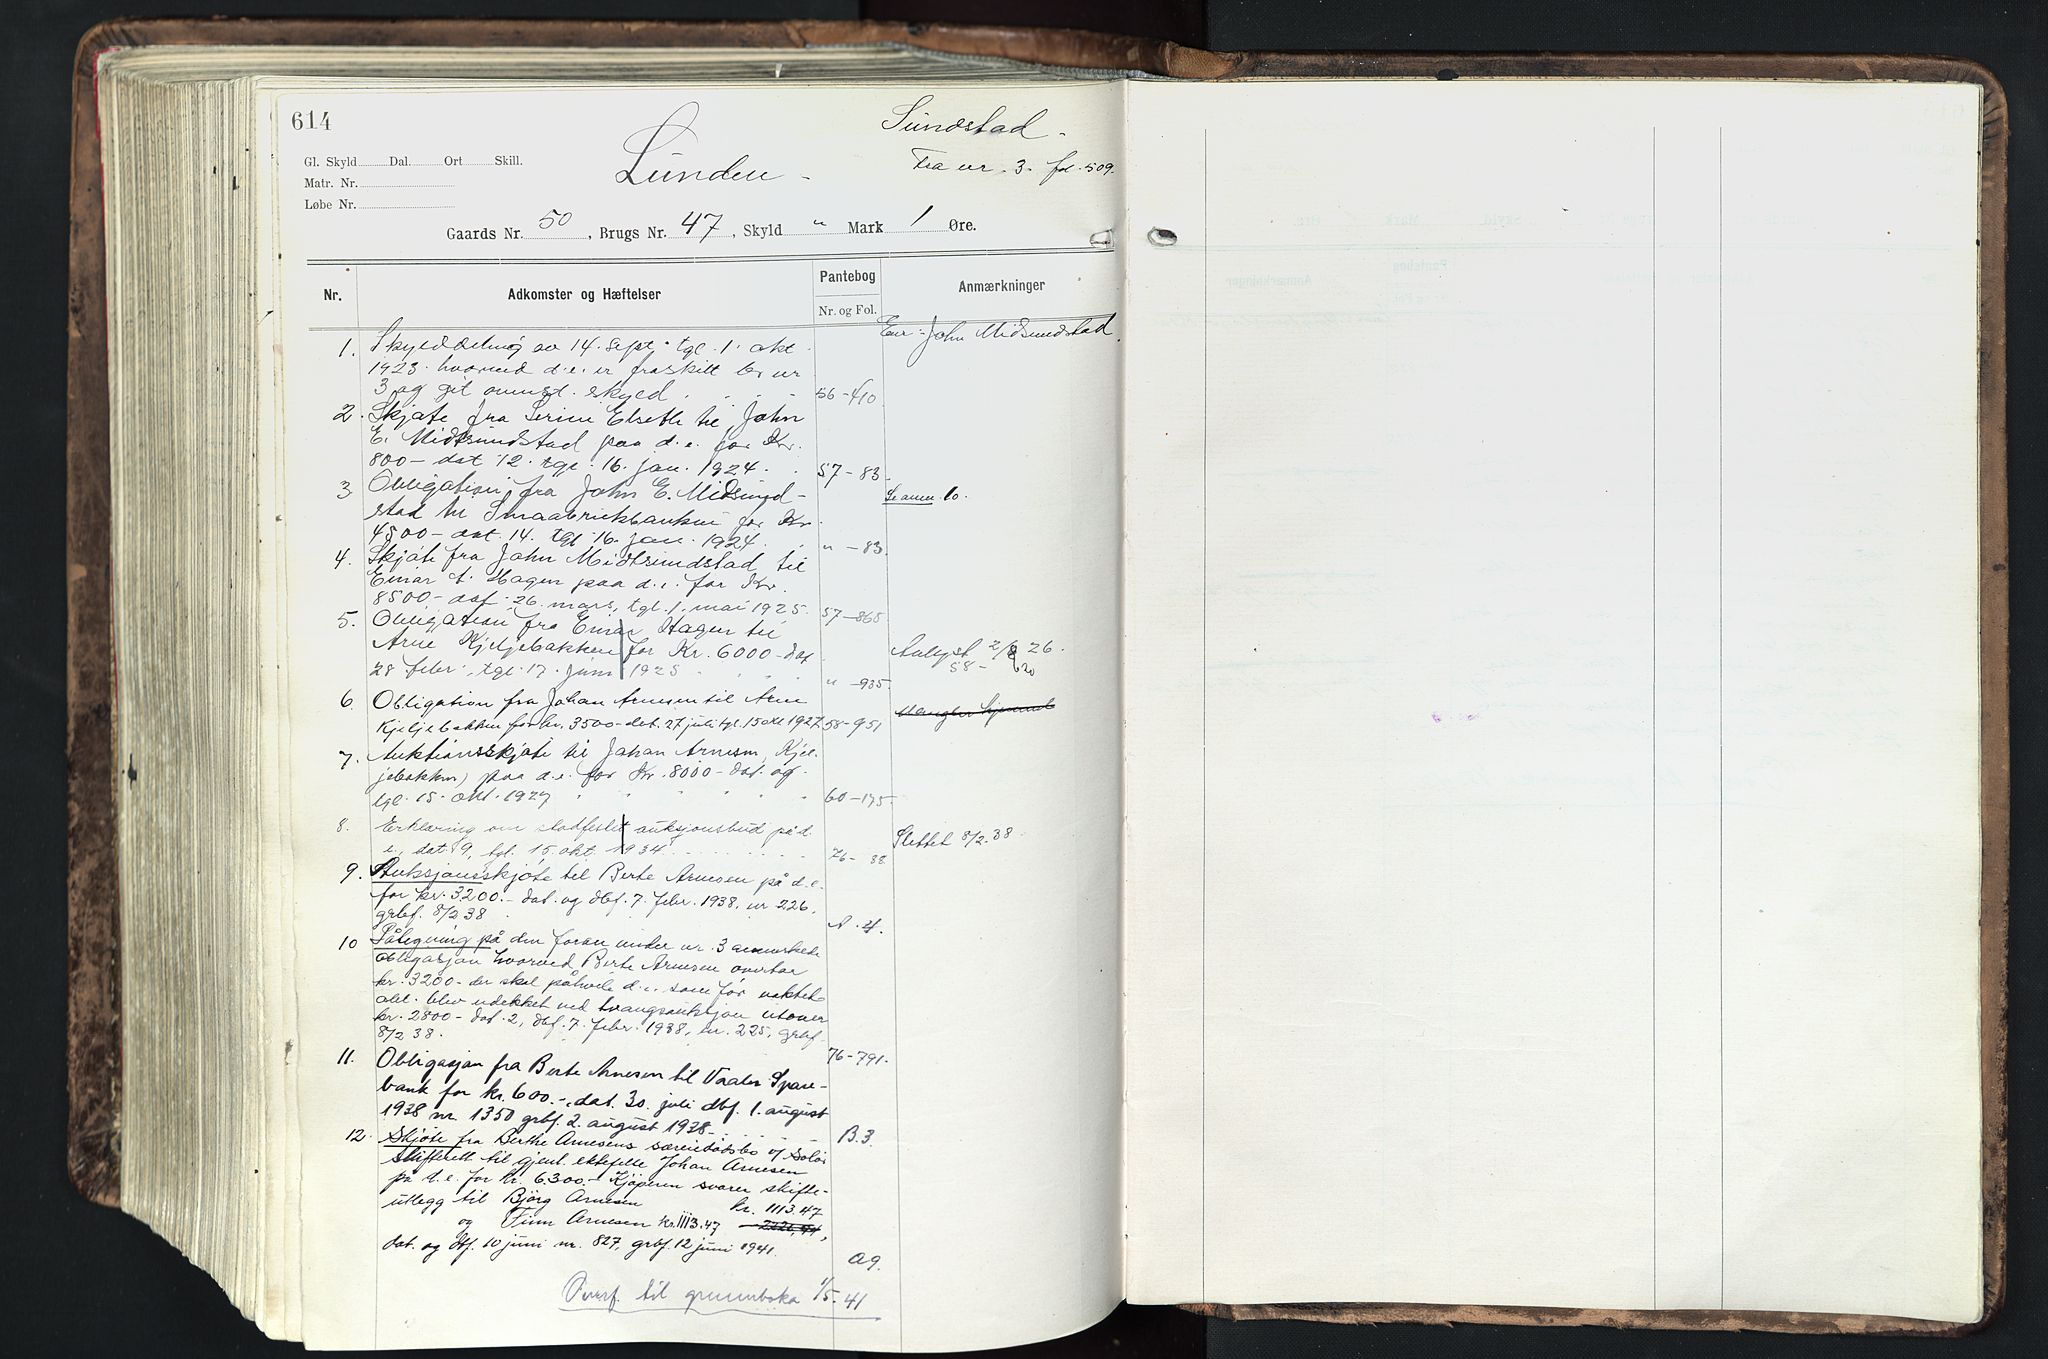 614
Sundstad -
Gl. Skyld Dal. Ort Skill.
Lunden -
Fra nr. 3. fol. 509.
Matr. Nr.
Løbe Nr.
Gaards Nr. 50, Brugs Nr. 47, Skyld " Mark 1 Øre.
Nr. Adkomster og Hæftelser Pantebog Nr. og Fol. Anmærkninger
Eier: John Midsundstad.
1. Skylddeling av 14. sept. tgl. 1. okt
1923 hvorved d.e. er fraskilt br nr
3 og git ovennt. skyld. 56-410
2. Skjøte fra Serine Elseth til John
E. Midtsundstad paa d.e. for Kr.
800- dat 12. tgl. 16. jan. 1924. 57-83.
3 Obligation fra John E. Midsund- Se anm. 10.
stad til Smaabrukbanken for Kr
4500- dat. 14. tgl. 16. jan. 1924. " -83.
4. Skjøte fra John Midtsundstad til
Einar A. Hagen paa d.e. for Kr.
8500- dat. 26. mars, tgl. 1. mai 1925. 57-865
5. Obligation fra Einar Hagen til
Arne Kjeljebakken for Kr. 6000- dat Avlyst 2/8 26.
28 febr., tgl. 17. juni 1925 " -935. 58-620
6. Obligation fra Johan Arnesen til Arne Mangler hjemmel
Kjeljebakken for kr. 3500- dat. 27 juli tgl. 15 okt 1927. 58-951
7. Auktionsskjøte til Johan Arnesen, Kjel-
jebakken, paa d.e. for Kr. 8000- dat. og
tgl. 15. okt. 1927 60-175.
8. Erklæring om stadfestet auksjonsbud på d. Slettet 8/2.38.
e., dat. 9, tgl. 15 okt. 1934. 76- 88.
9. Auksjonsskjøte til Berte Arnesen på d.e.
for kr. 3200.- dat. og dbf. 7. febr. 1938. nr 226,
grbf. 8/2 38 A. 4.
10 Påtegning på den foran under nr. 3 anmerkede
obligasjon hvorved Berte Arnesen overtar
kr. 3200- der skal påhvile d.e. som før
blev udekket ved tvangsauksjon utover
kr. 2800- dat. 2, dbf. 7. febr. 1938, nr. 225, grbf.
8/2 38. 76-791.
11. Obligasjon fra Berte Arnesen til Vaaler Spare-
bank for kr. 600.-, dat. 30. juli dbf. 1. august
1938 nr. 1350 grbf. 2. august 1938- B.3.
12. Skjøte fra Berthe Arnesens særeiedødsbo v/ Solør
skifterett til gjenl. ektefelle Johan Arnesen
på d.e. for kr. 6.300.- Kjøperen svarer skifte-
utlegg til Bjørg Arnesen kr. 1113.47
og Finn Arnesen kr. 1113.47 2226,94,
dat. og dbf. 10 juni nr. 827, grbf. 12 juni 1941. A9.
Overf. til grunnboka 1/5-41